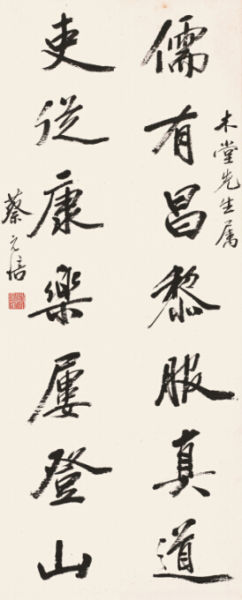 木堂先生属
儒有昌黎服真道
吏从康樂屢登山
蔡元培